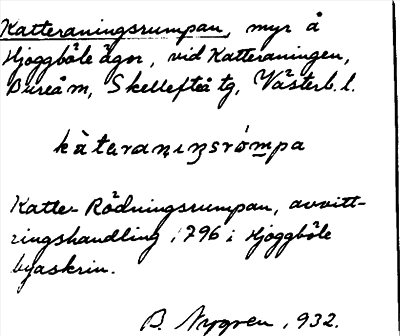 Katteraningsrumpan, myr å
Hjoggböle ägor, vid Katteraningen,
Bureå m, Skellefteå tg, Västerb. l.
kàteranıṇʒsrómpa
Katte-Rödningsrumpan, avvitt-
ringshandling 1796 i Hjoggböle
byaskrin.
B. Nygren, 1932.